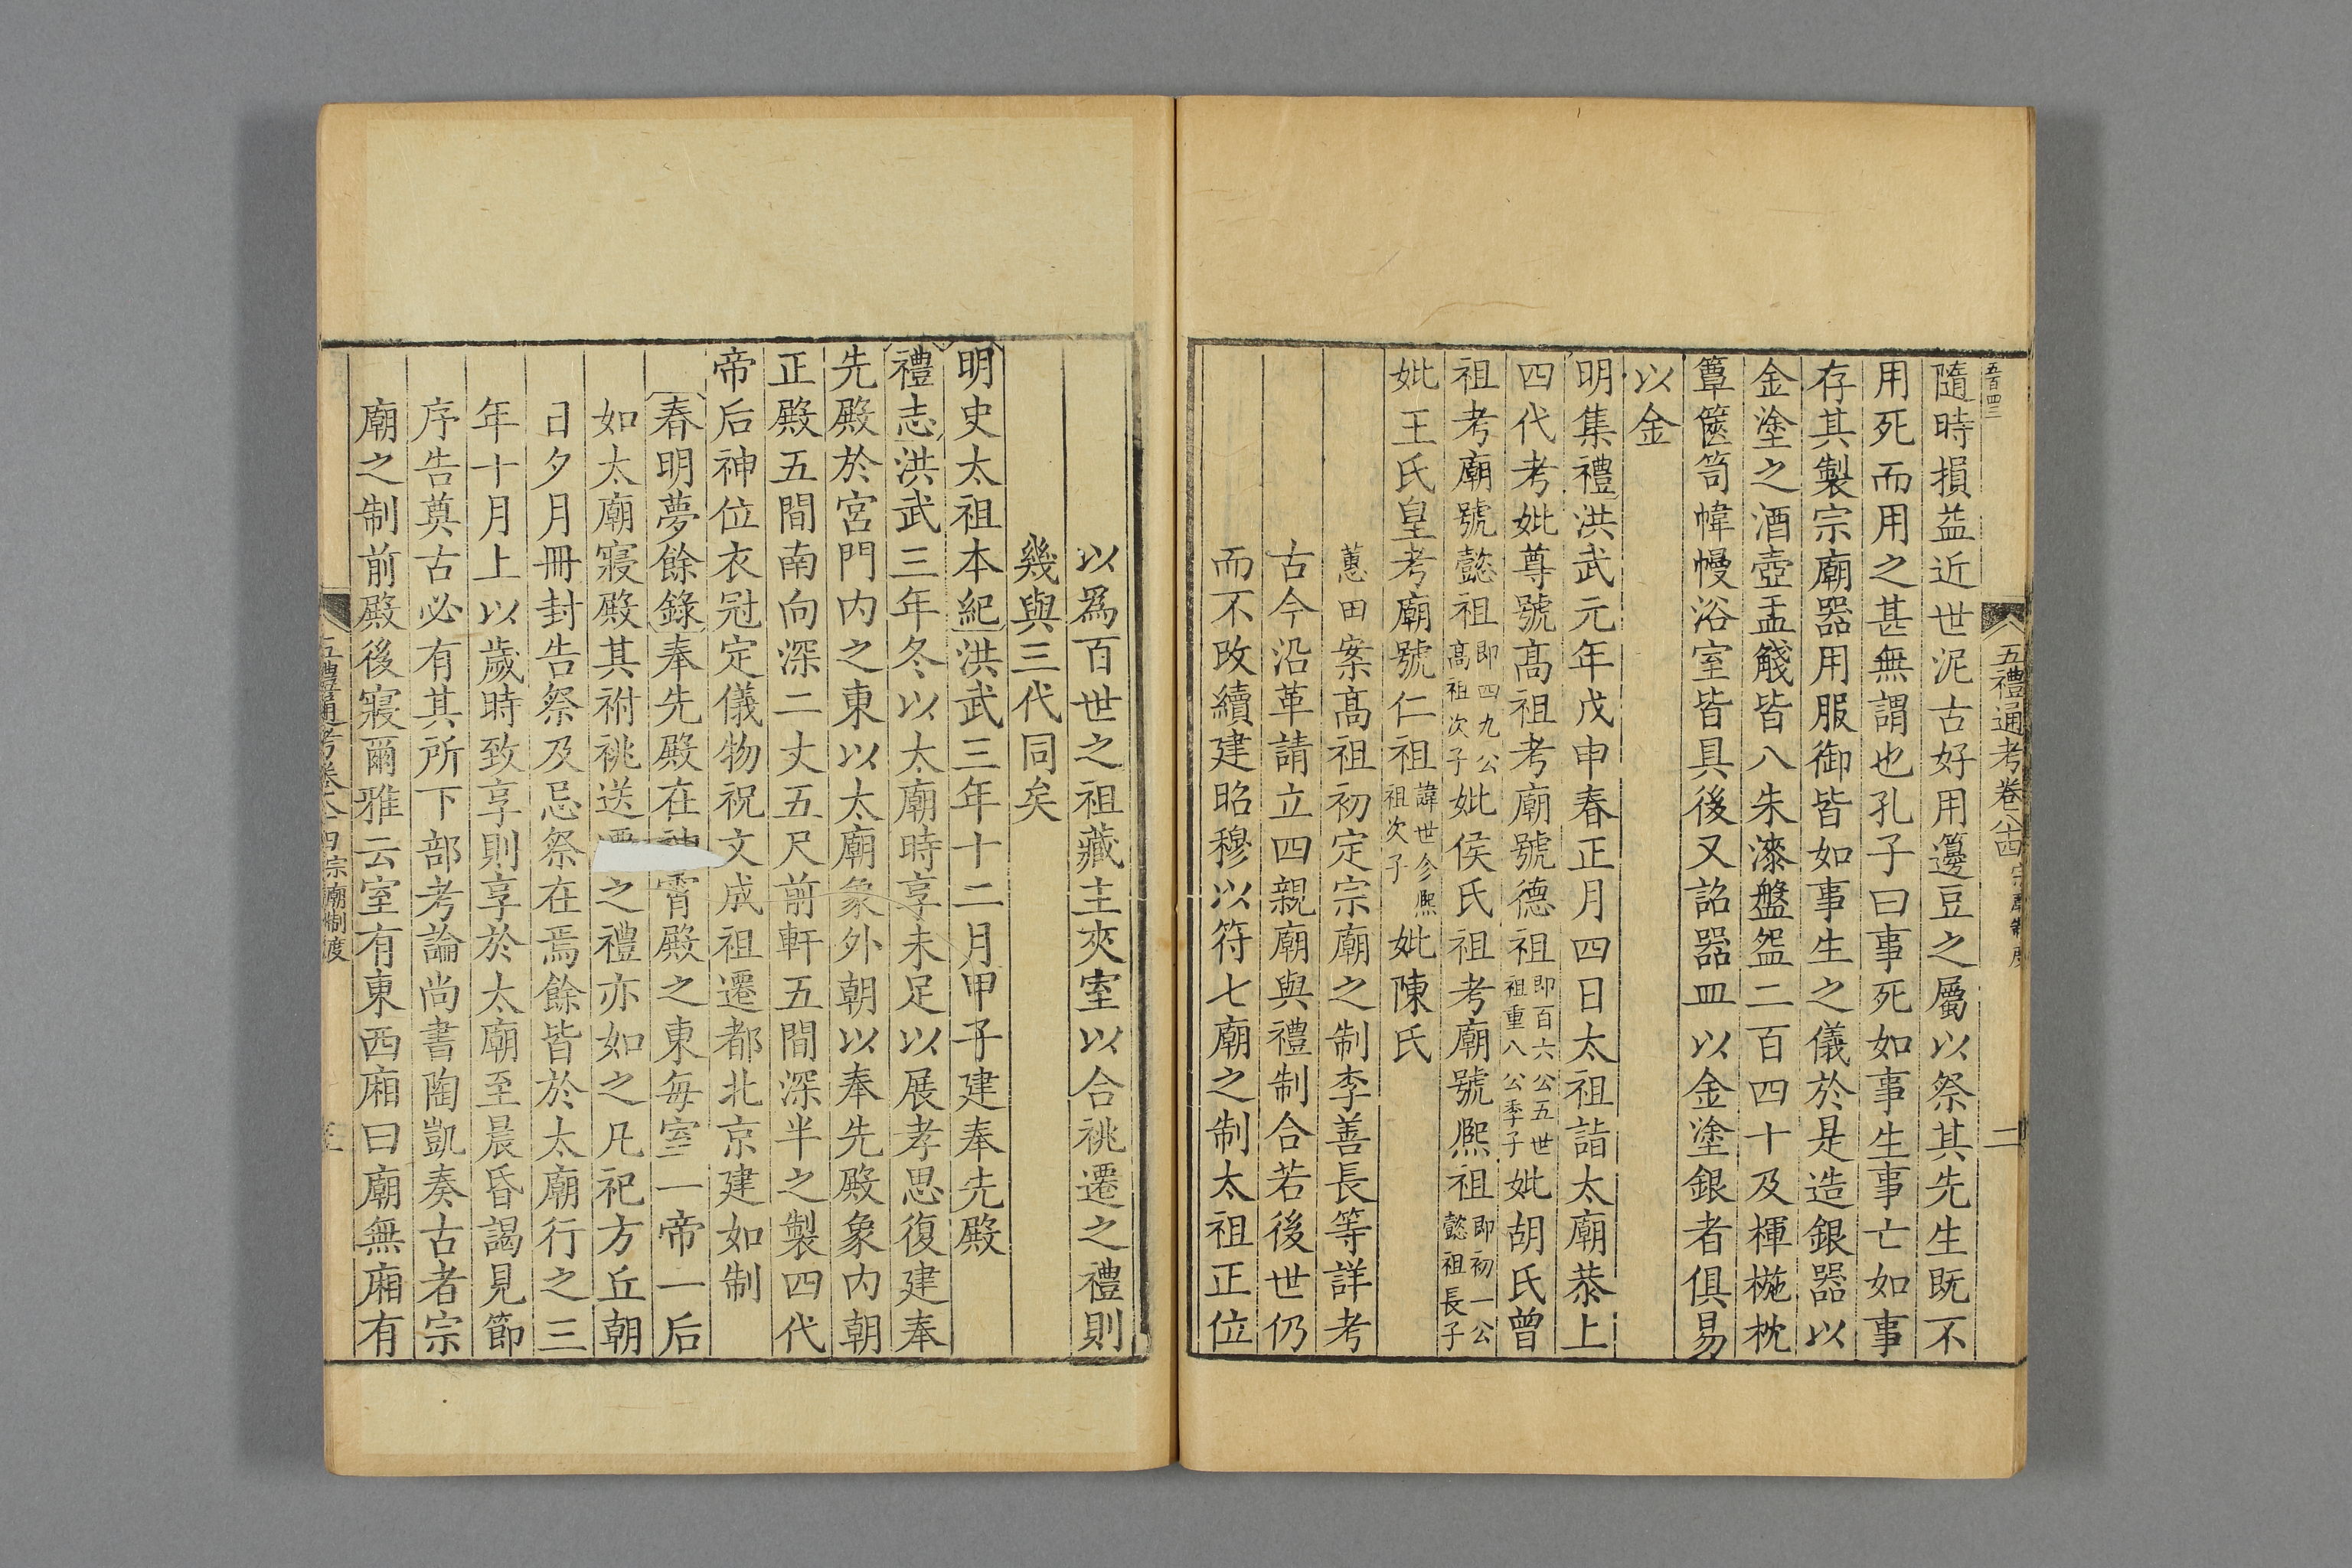 五百四三
五禮通考卷八十四 宗廟制度
二
隨時損益近世泥古好用籩豆之屬以祭其先生既不
用死而用之甚無謂也孔子曰事死如事生事亡如事
存其製宗廟器用服御皆如事生之儀於是造銀器以
金塗之酒壺盂觴皆八朱漆盤盌二百四十及楎椸枕
簟篋笥幃幔浴室皆具後又詔器皿以金塗銀者俱易
以金
明集禮洪武元年戊申春正月四日太祖詣太廟恭上
四代考妣尊號高祖考廟號德祖即百六公五世祖重八公季子妣胡氏曾
祖考廟號懿祖即四九公高祖次子妣侯氏祖考廟號熈祖即初一公懿祖長子
妣王氏皇考廟號仁祖諱世今熈祖次子妣陳氏
蕙田案高祖初定宗廟之制李善長等詳考
古今沿革請立四親廟與禮制合若後世仍
而不改續建昭穆以符七廟之制太祖正位
以爲百世之祖藏主夾室以合祧遷之禮則
幾與三代同矣
明史太祖本紀洪武三年十二月甲子建奉先殿
禮志洪武三年冬以太廟時享未足以展孝思復建奉
先殿於宮門內之東以太廟象外朝以奉先殿象内朝
正殿五間南向深二丈五尺前軒五間深半之製四代
帝后神位衣冠定儀物祝文成祖遷都北京建如制
春明夢餘錄奉先殿在神霄殿之東每室一帝一后
如太廟寢殿其祔祧送之禮亦如之凡祀方丘朝
日夕月冊封告祭及忌祭在焉餘皆於太廟行之三
年十月上以歲時致享則享於太廟至晨昏謁見節
序告奠古必有其所下部考論尚書陶凱奏古者宗
廟之制前殿後寢爾雅云室有東西廂曰廟無廂有
五禮通考卷八十四 宗廟制度